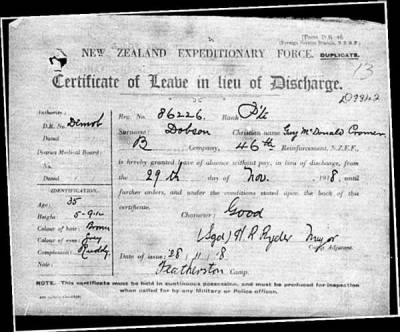 (Foreign Service Branch, N.Z.E.F.)
NEW ZEALAND EXPEDITIONARY FORCE. DUPLICATE.
13
Certificate of Leave in lieu of Discharge.
D.R. No. Demob
Authority: Reg. No. 86226 Rank Pte
Surname: Dobson Christian name Guy McDonald
District Medical Board: B Company, 46th Reinforcement, N.Z.E.F.
No.
is hereby granted leave of absence without pay, in lieu of discharge, from
Dated the 29th day of Nov. 1918, until
IDENTIFICATION.
further orders, and under the conditions stated upon the back of this
certificate.
Age: 35
Height: 5-9½
Character: Good
Colour of hair: Brown
Colour of eyes: Grey
Complexion: Ruddy
(Sgd) H R Ryder Major
Camp Adjutant.
Date of issue: 28 / 11 / 18
Featherston Camp.
NOTE. This certificate must be held in continuous possession, and must be produced for inspection
when called for by any Military or Police officer.